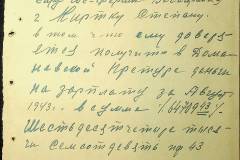 г. Миртку Степану.
в том что ему доверя
ется получить в Дома
невской Претуре деньги
на зарплату за Август
1943 г. в сумме /64709 43/
Шестьдесятчетыре тыся
чи семсотдевять мр 43